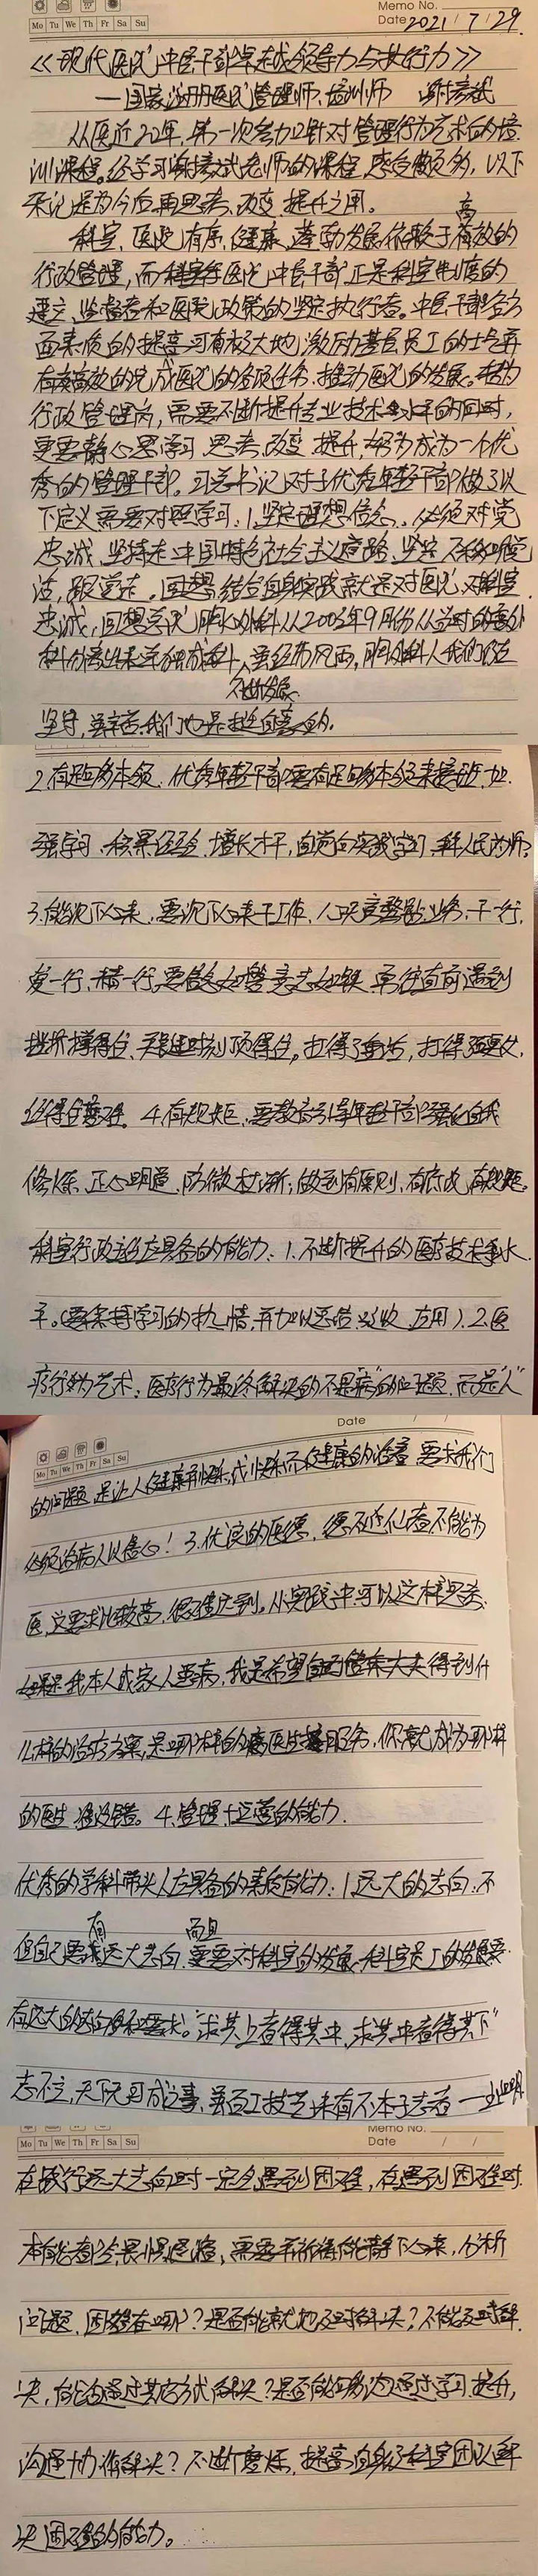 Memo No.
Mo Tu We Th Fr Sa Su
Date 2021 / 7 / 29.
《现代医院中层干部卓越领导力与执行力》
—国家注册医院管理师、培训师
从医近20年,第一次参加针对管理行为艺术的培
训课程。经学习老师的课程,感受颇多,以下
笔记是为今后再思考、改变、提升之用。
科室、医院有序、健康、蓬勃发展依赖于高效的
行政管理,而医院中层干部正是科室制度的
建立、监督者和医院政策的坚定执行者。中层干部各方
面素质的提高可有极大地激励基层员工的士气并
有效高效的完成医院的各项任务,推动医院的发展。转为
行政管理岗,需要不断提升专业技术水平的同时,
更要静心思学习、思考、改变、提升,努力成为一个优
秀的管理干部。习总书记对于优秀年轻干部做了以
下定义需要对照学习:1.坚定理想信念。必须对党
忠诚,坚持走中国特色社会主义道路,坚定不移听党
话,跟党走。回想结合自身实践就是对医院、对科室
忠诚,回想总院胸心外科从2003年9月份从当时的
科分离出来单独成科,虽经历风雨,胸外科人我们仍在
不断发展
坚持,虽辛苦,我们也是的。
2.有足够本领。优秀年轻干部要有足够本领来接班,加
强学习、积累经验、增长才干,自觉向实践学习、拜人民为师。
3.能沉下心来。要沉下心来干工作,心无旁骛钻业务,干一行、
爱一行、精一行。要信念如磐、意志如铁、勇往直前,遇到
挫折撑得住,关键时刻顶得住,扛得了重活,打得了硬仗,
经得住磨难。4.有规矩。要教育引导年轻干部强化自我
修炼、正心明道、防微杜渐,做到有原则、有底线、有规矩。
科室行政主任应具备的能力:1.不断提升的医疗技术水
平。(要保持学习的热情,并加以总结、吸收、应用)。2.医
疗行为艺术:医疗行为最终解决的不是"病"的问题,而是"人"
Date / /
Mo Tu We Th Fr Sa Su
的问题,是让人健康并快乐,或快乐而健康的活着,要求我们
必须治病人以虚心!3.优良的医德,德不近仙者不能为
医,这要求比较高,很难达到。从实践中可以这样思考,
如果是我本人或家人患病,我是希望得到什
么样的治疗方案,是哪样的医生服务,你就成为那样
的医生准没错。4.管理+运营的能力。
优秀的学科带头人应具备的素质能力:1.远大的志向:不
有 而且
但自己要远大志向,更要对科室的发展、科室员工的发展要
有远大的志向和要求。"求其上者得其中,求其中者得其下"
志不立,天下无可成之事,虽百工技艺,未有不本于志者——王阳明
Memo No.
Mo Tu We Th Fr Sa Su
Date / /
在践行远大志向时一定会遇到困难,在遇到困难时
本能都会畏惧退缩,需要能静下心来,分析
问题,困难在哪?是否能就地及时解决?不能及时解
决,能否通过其它方式解决?是否能够通过学习、提升,
沟通协作解决?不断磨炼,提高自身及科室团队解
决困难的能力。